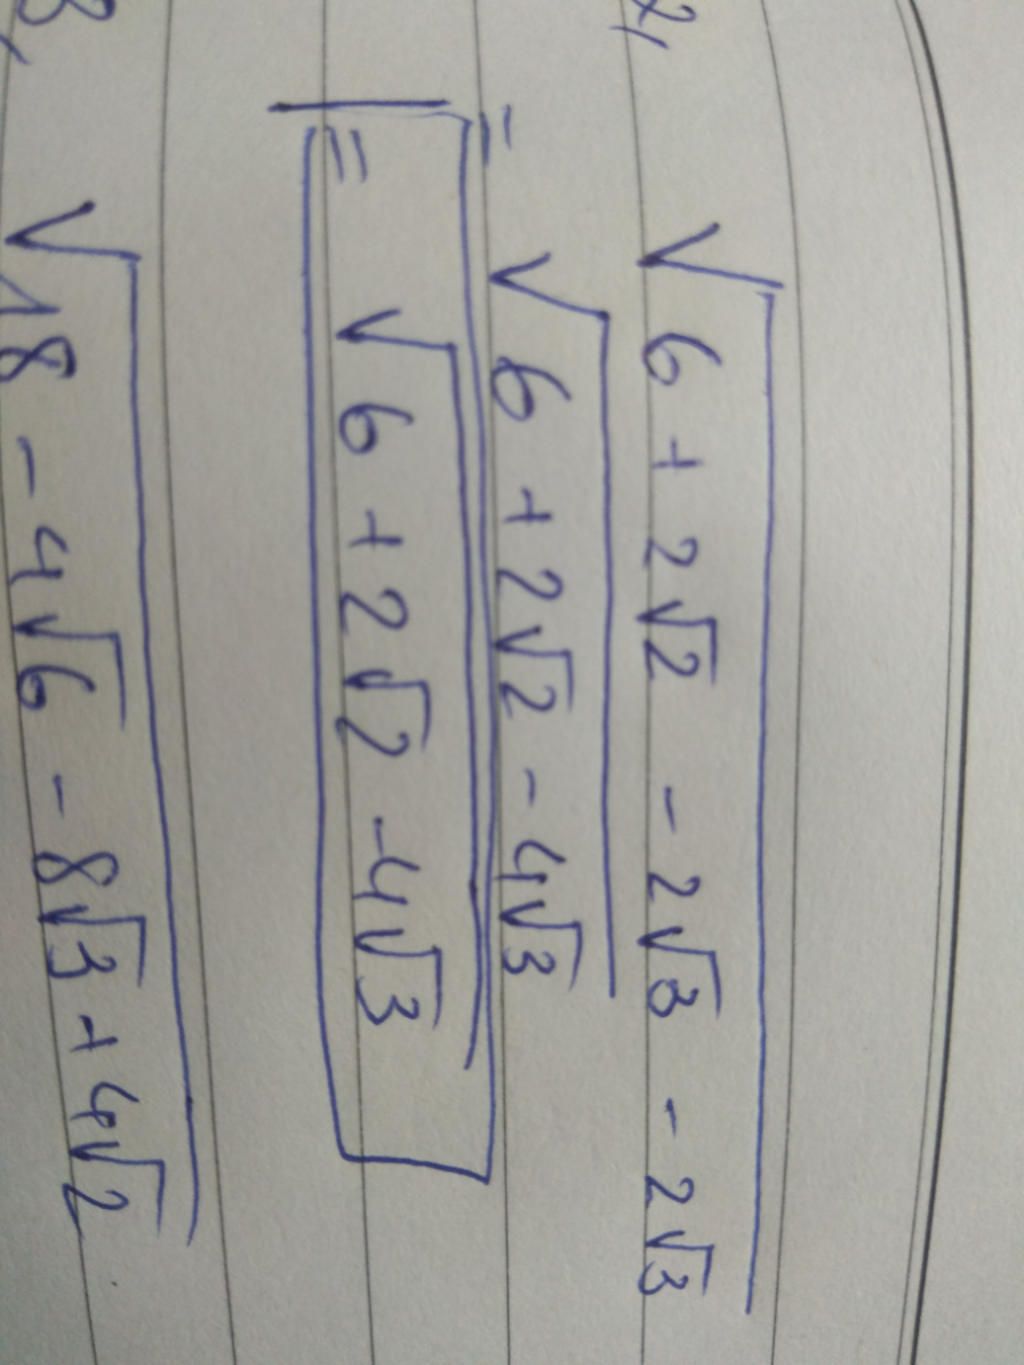 2, √(6 + 2√2 - 2√3 - 2√3)
= √(6 + 2√2 - 4√3)
= √(6 + 2√2 - 4√3)
3, √(18 - 4√6 - 8√3 + 4√2)